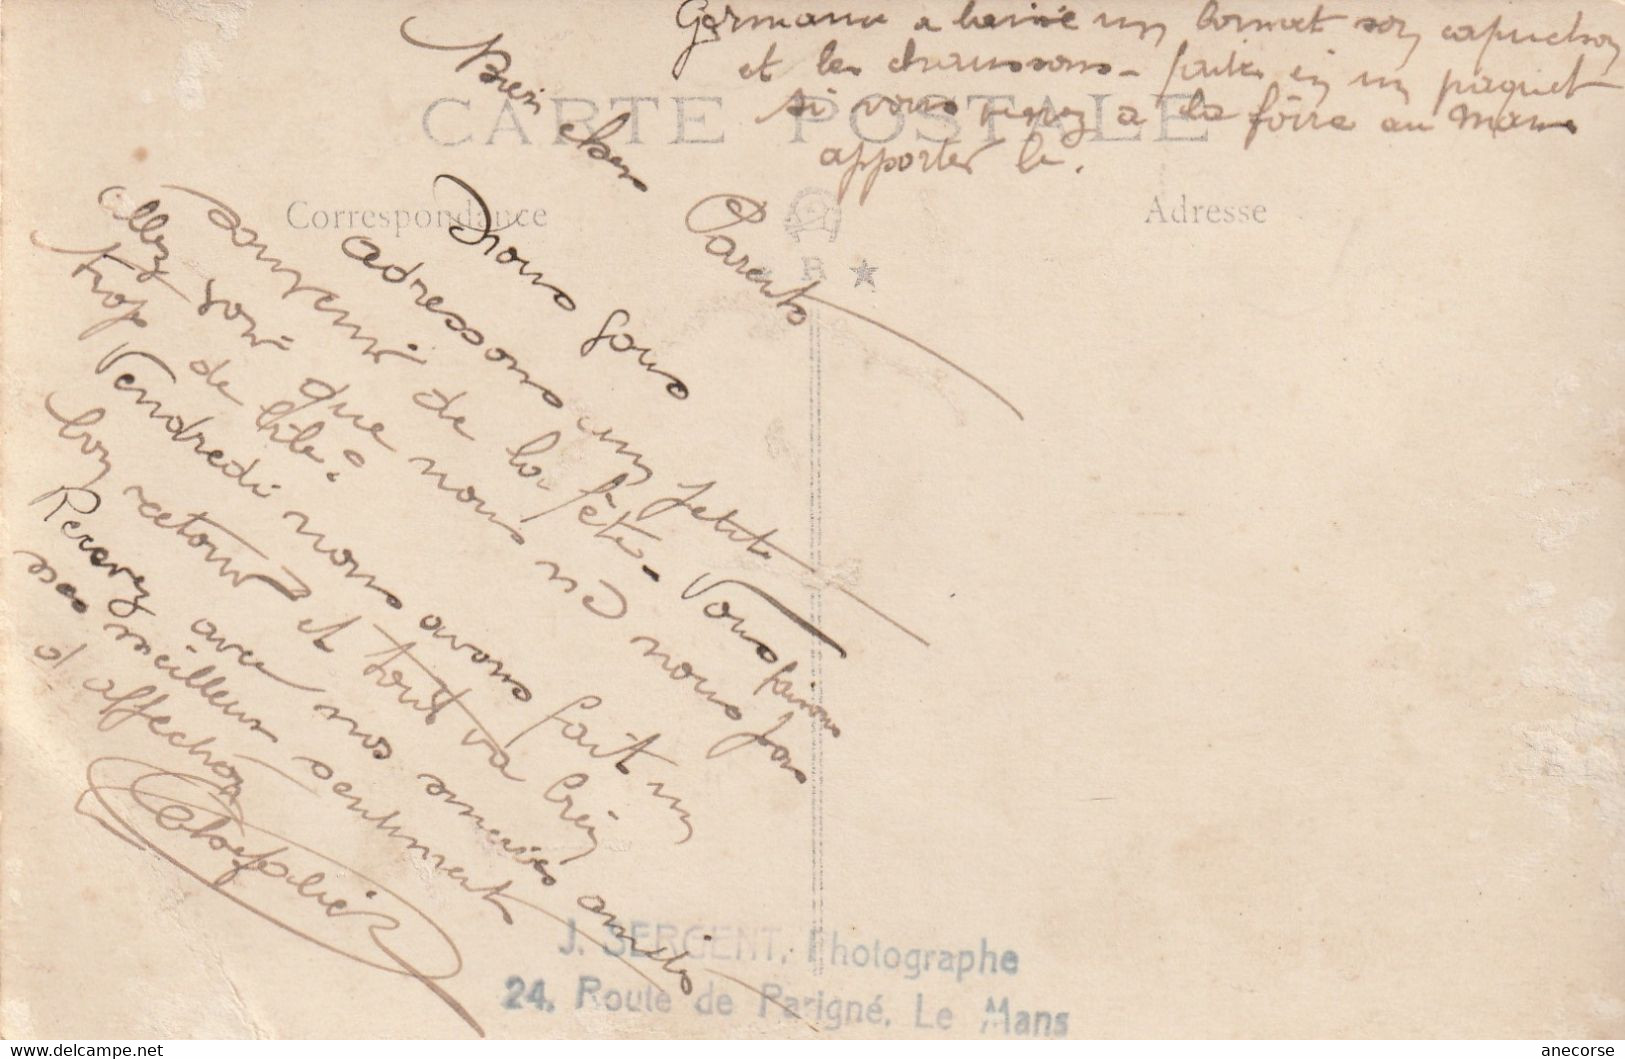 Germaine a laissé un bonnet son capuchon
et les chaussons - faites en un paquet
si vous venez a la foire au Mans
apporter le.
CARTE POSTALE
Correspondance
Adresse
Bien chers Parents
Nous vous
adressons un petit
souvenir de la fête - Vous
allez voir que nous ne nous
trop de bile.
Vendredi nous avons fait un
bon retour et tout va bien
Recevez avec nos amitiés
nos meilleurs sentiments
d'affection
J. SERGENT, Photographe
24, Route de Parigné, Le Mans
anecorse